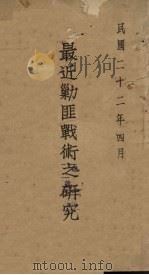 民國二十二年四月
最近勦匪戰術之研究